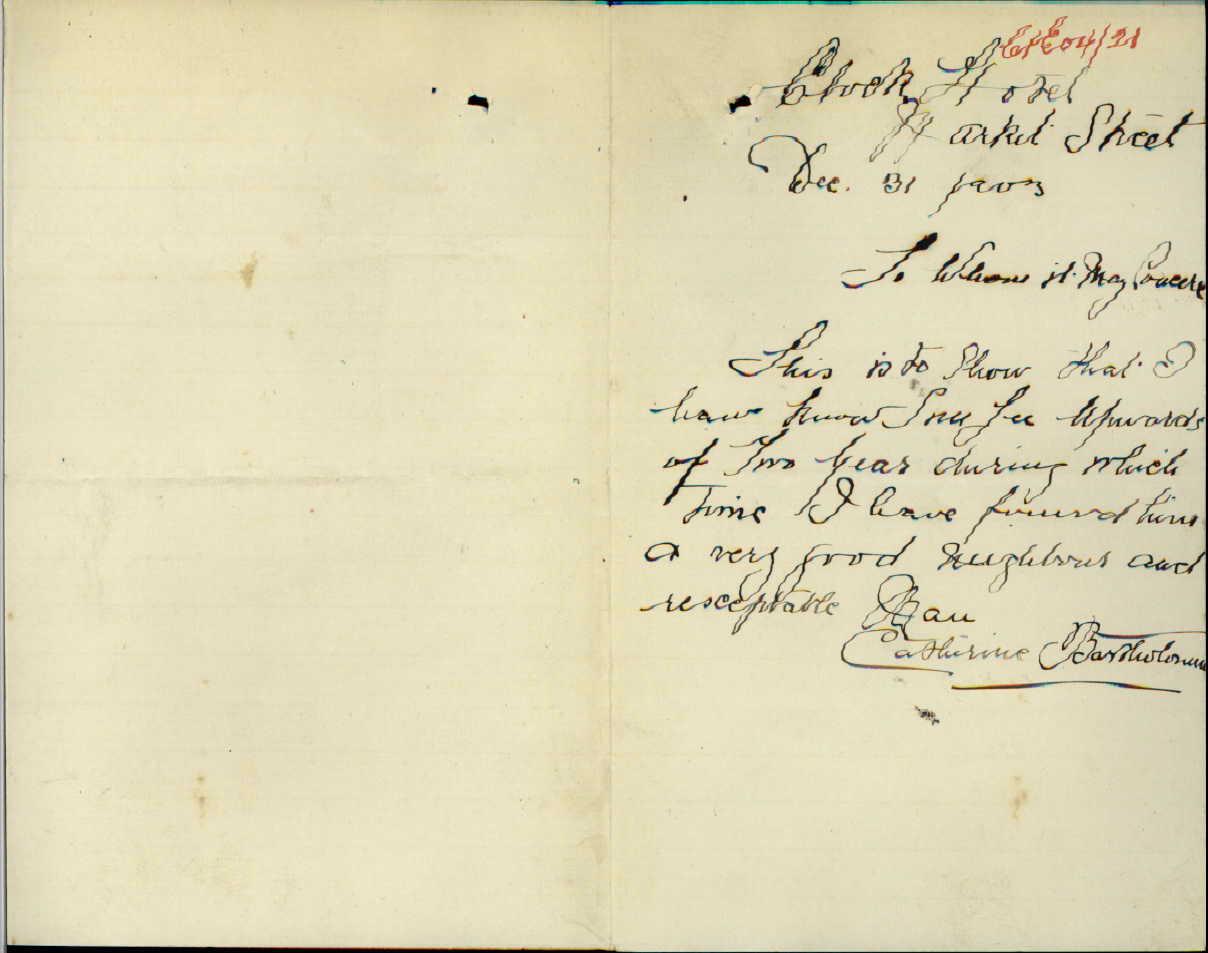 04/21
Clock Hotel
Market Street
Dec. 31 1903
To Whom it May Concern
This is to Show that I
have know Lee Upwards
of Two Year during which
Time I have found him
a very good neighbour and
resceptable Man
Catherine Bartholomew